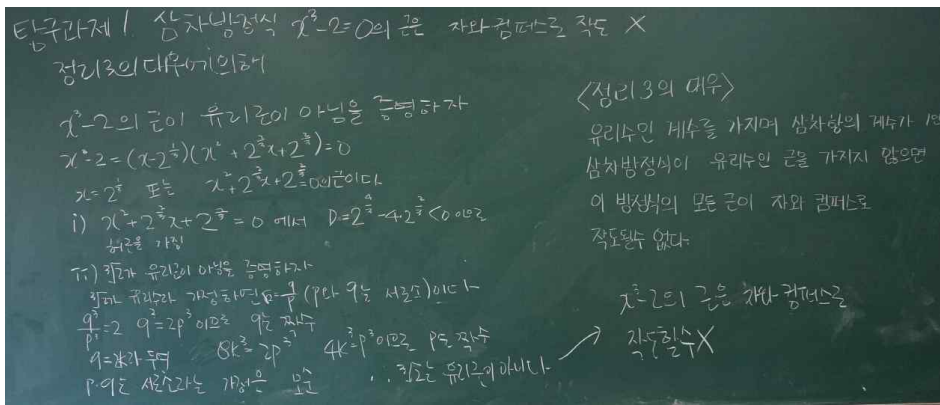 탐구과제 1. 삼차방정식 x³-2=0의 근은 자와 컴퍼스로 작도 X
정리3의 대우에 의해
x³-2의 근이 유리근이 아님을 증명하자
x³-2=(x-2^{1/3})(x²+2^{1/3}x+2^{2/3})=0
x=2^{1/3} 또는 x²+2^{1/3}x+2^{2/3}=0의 근이다
i) x²+2^{1/3}x+2^{2/3}=0 에서 D= <0 이므로
허근을 가짐
ii) ∛2가 유리근이 아님을 증명하자
∛2가 유리수라 가정하면 ∛2=q/p (p와 q는 서로소)이다
q³/p³=2 q³=2p³이므로 q는 짝수
q=2k라 두면 8k³=2p³ 4k³=p³이므로 p도 짝수
p, q는 서로소라는 가정은 모순 ∴ ∛2는 유리근이 아니다
<정리3의 대우>
유리수인 계수를 가지며 삼차항의 계수가 1인
삼차방정식이 유리수인 근을 가지지 않으면
이 방정식의 모든 근이 자와 컴퍼스로
작도될수 없다.
x³-2의 근은 자와 컴퍼스로
작도할수 X